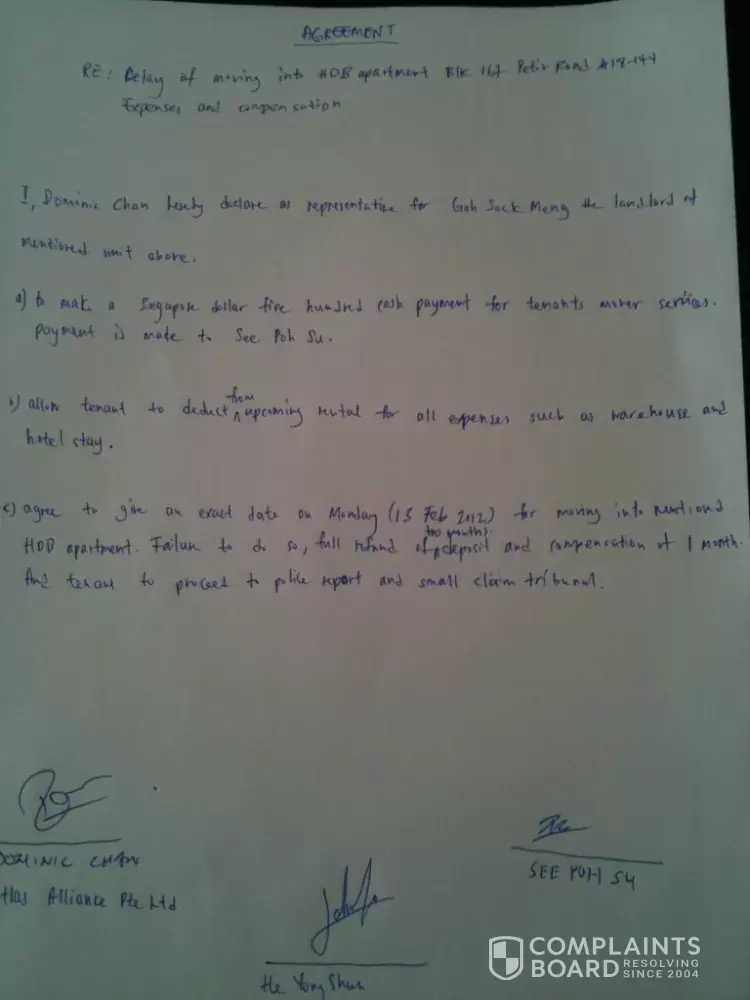 AGREEMENT
RE: Delay of moving into HDB apartment Blk 167 Petir Road #18-144
Expenses and compensation
I, Dominic Chan hereby declare as representative for Goh Sock Meng the landlord of
mentioned unit above.
a) to make a Singapore dollar five hundred cash payment for tenants mover services.
payment is made to See Poh Su.
b) allow tenant to deduct from upcoming rental for all expenses such as warehouse and
hotel stay.
c) agree to give an exact date on Monday (13 Feb 2012) for moving into mentioned
HDB apartment. Failure to do so, full refund of two months deposit and compensation of 1 month.
And tenant to proceed to police report and small claim tribunal.
DOMINIC CHAN
Atlas Alliance Pte Ltd
SEE POH SU
He Yong Shun
COMPLAINTS
BOARD RESOLVING
SINCE 2004